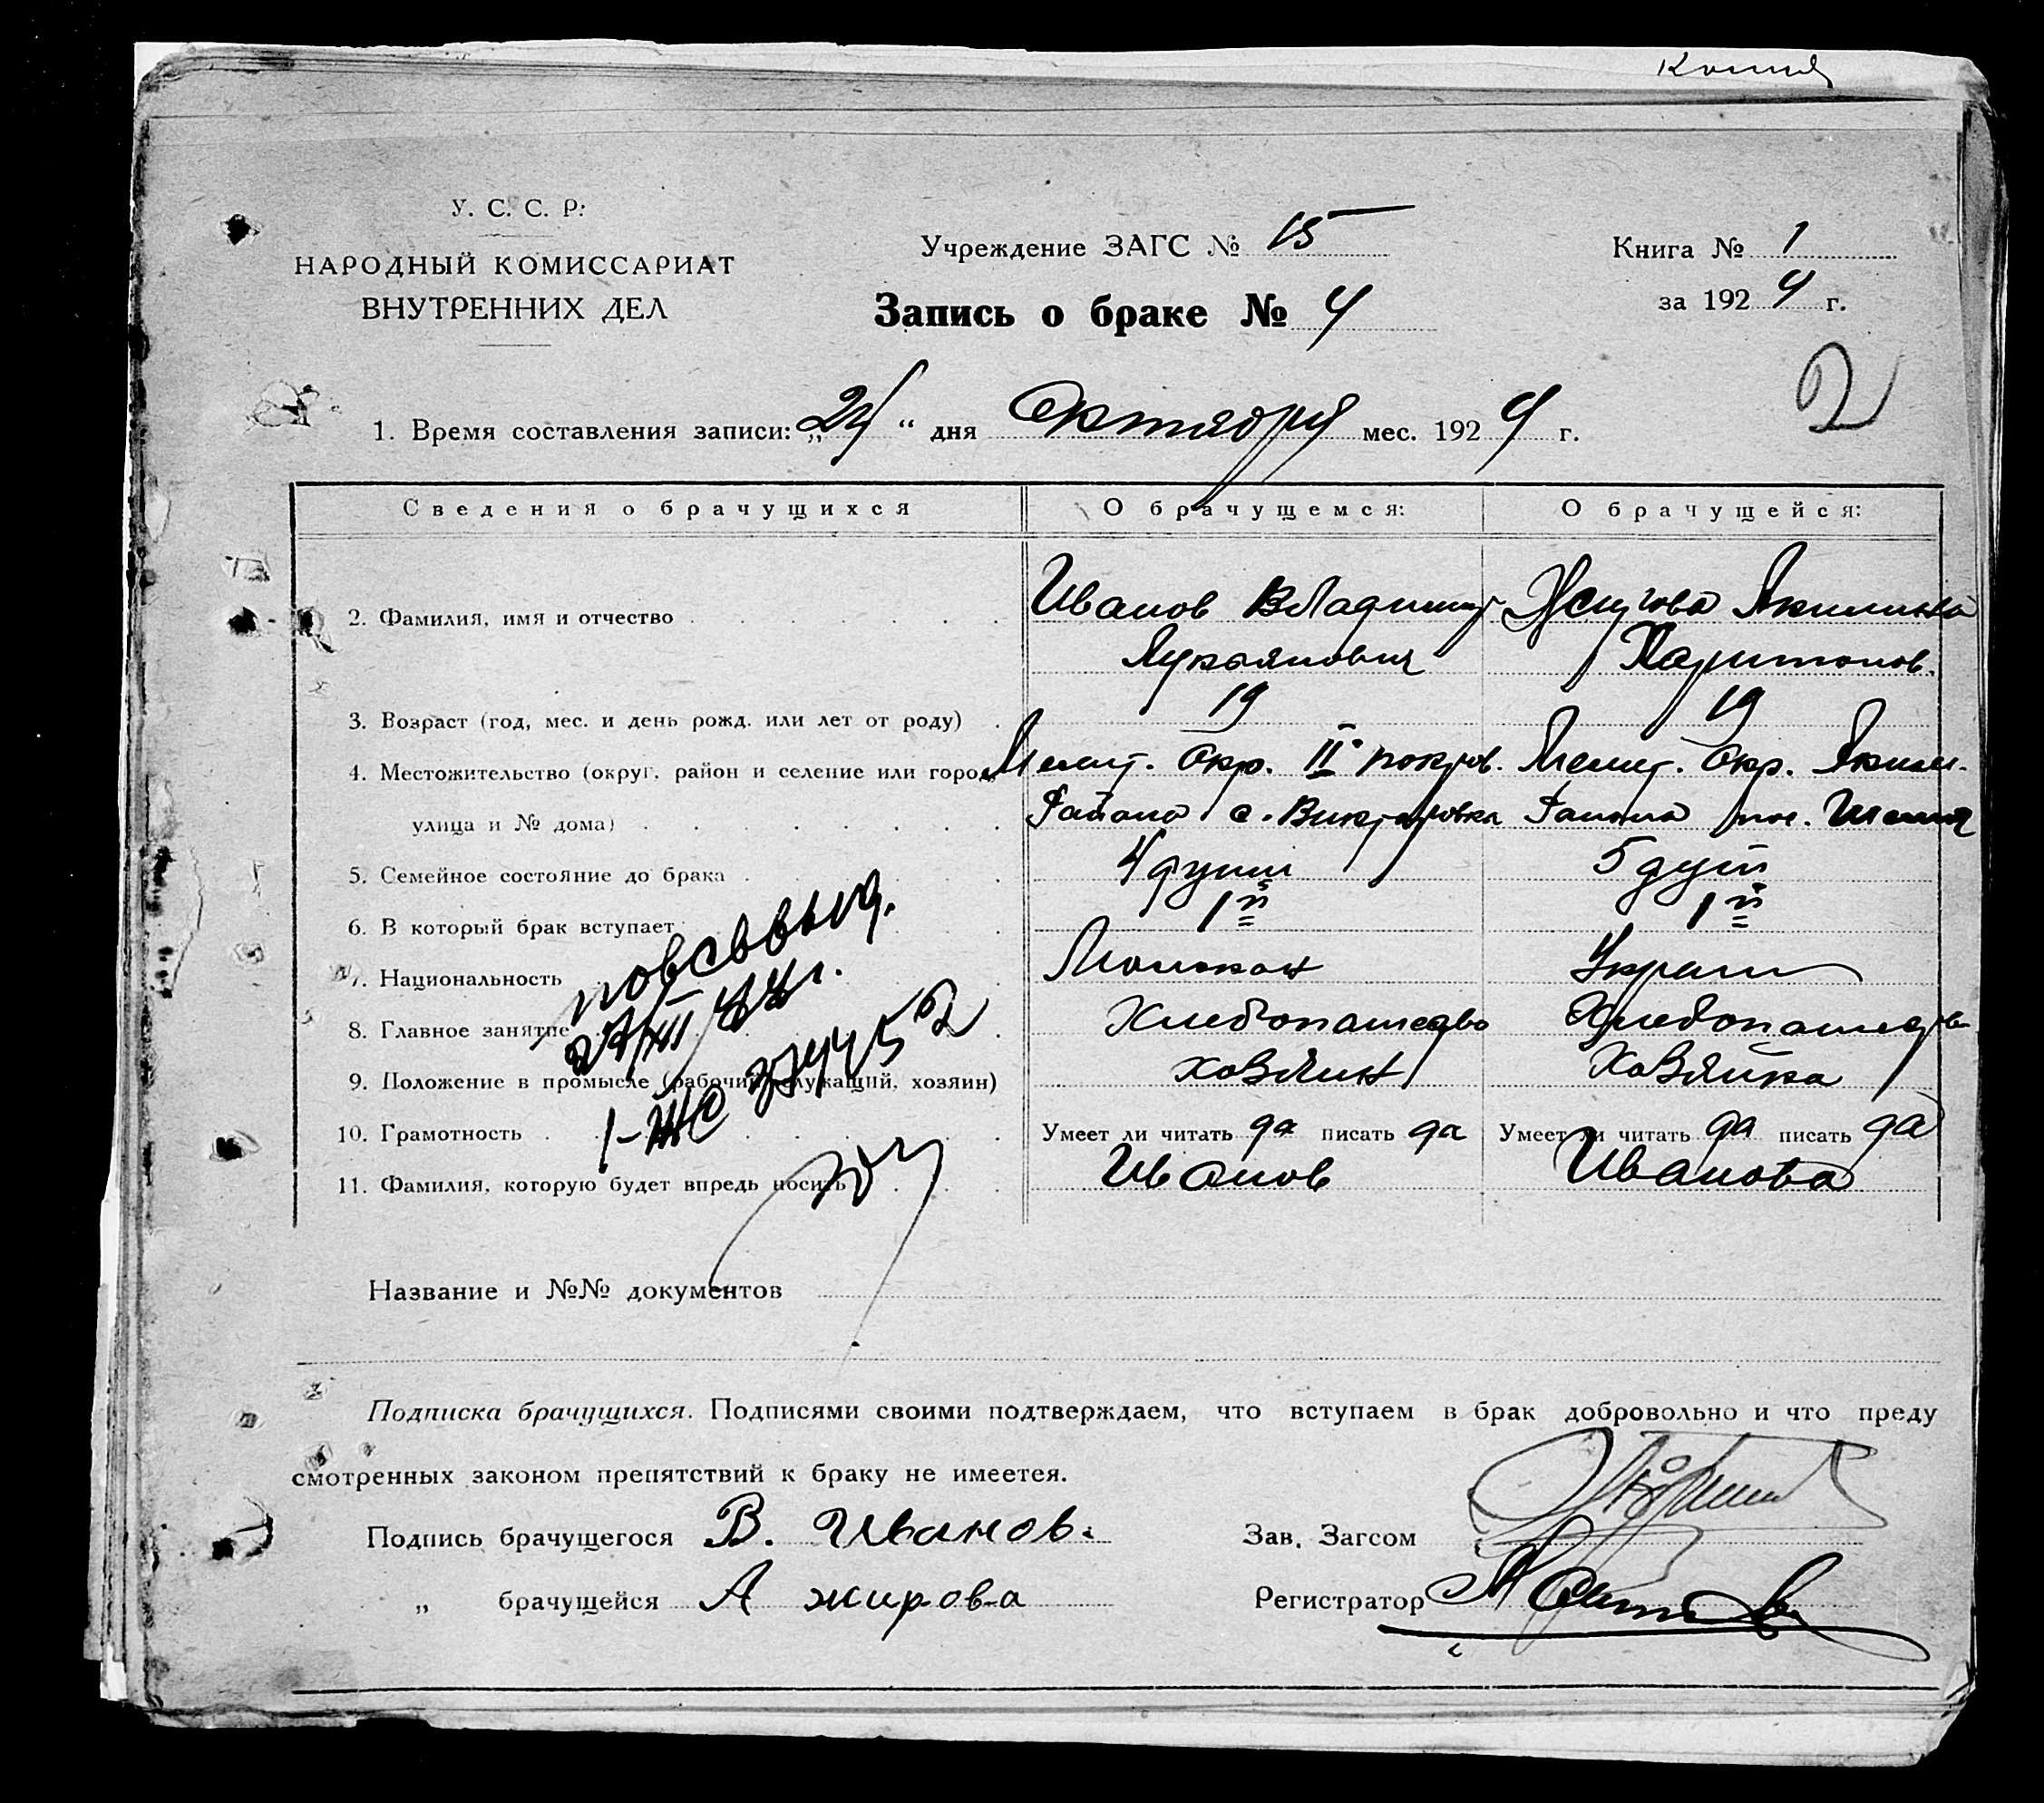 Копия
У. С. С. Р.
НАРОДНЫЙ КОМИССАРИАТ
ВНУТРЕННИХ ДЕЛ
Учреждение ЗАГС № 15
Книга № 1
за 1924 г.
Запись о браке № 4
2
1. Время составления записи: „24“ дня Октября мес. 1924 г.
Сведения о брачущихся О брачущемся: О брачущейся:
2. Фамилия, имя и отчество Иванов Владимир Жирова Акилина
Лукьянович Харитонов.
3. Возраст (год, мес. и день рожд. или лет от роду) 19 19
4. Местожительство (округ, район и селение или город, Мелит. Окр. II покров. Мелит. Окр. Аким.
улица и № дома) Района с. Викторовка Района пос.
5. Семейное состояние до брака 4 души 5 душ
6. В который брак вступает 1й 1й
7. Национальность Украин
8. Главное занятие Хлебопашество Хлебопашество
9. Положение в промысле (рабочий, служащий, хозяин) хозяин хозяйка
10. Грамотность Умеет ли читать да писать да Умеет ли читать да писать да
11. Фамилия, которую будет впредь носить Иванов Иванова
Название и №№ документов
Подписка брачущихся. Подписями своими подтверждаем, что вступаем в брак добровольно и что преду
смотренных законом препятствий к браку не имеется.
Подпись брачущегося В. Иванов.
Зав. Загсом
„ брачущейся А жирова
Регистратор